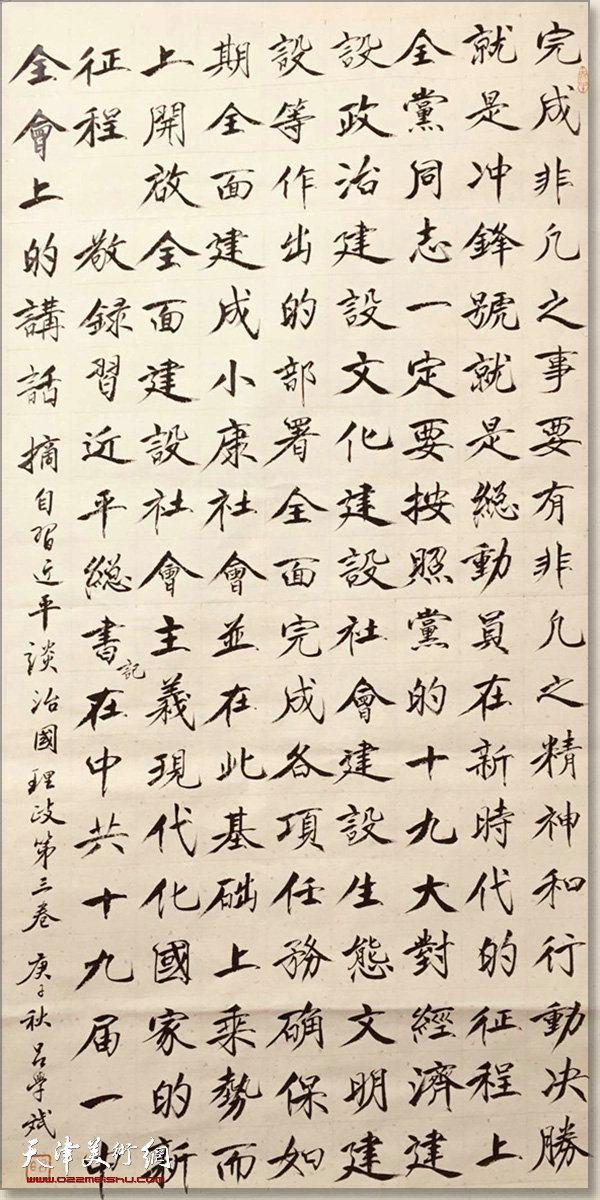 完成非凡之事要有非凡之精神和行動决勝
就是冲鋒號就是總動員在新時代的征程上
全黨同志一定要按照黨的十九大對經濟建
設政治建設文化建設社會建設生態文明建
設等作出的部署全面完成各項任務确保如
期全面建成小康社會並在此基础上乘勢而
上開啟全面建設社會主義現代化國家的新
征程 敬録習近平總書記在中共十九届一中
全會上的講話 摘自習近平談治國理政第三卷 庚子秋 吕學斌
天津美術網
www.022meishu.com